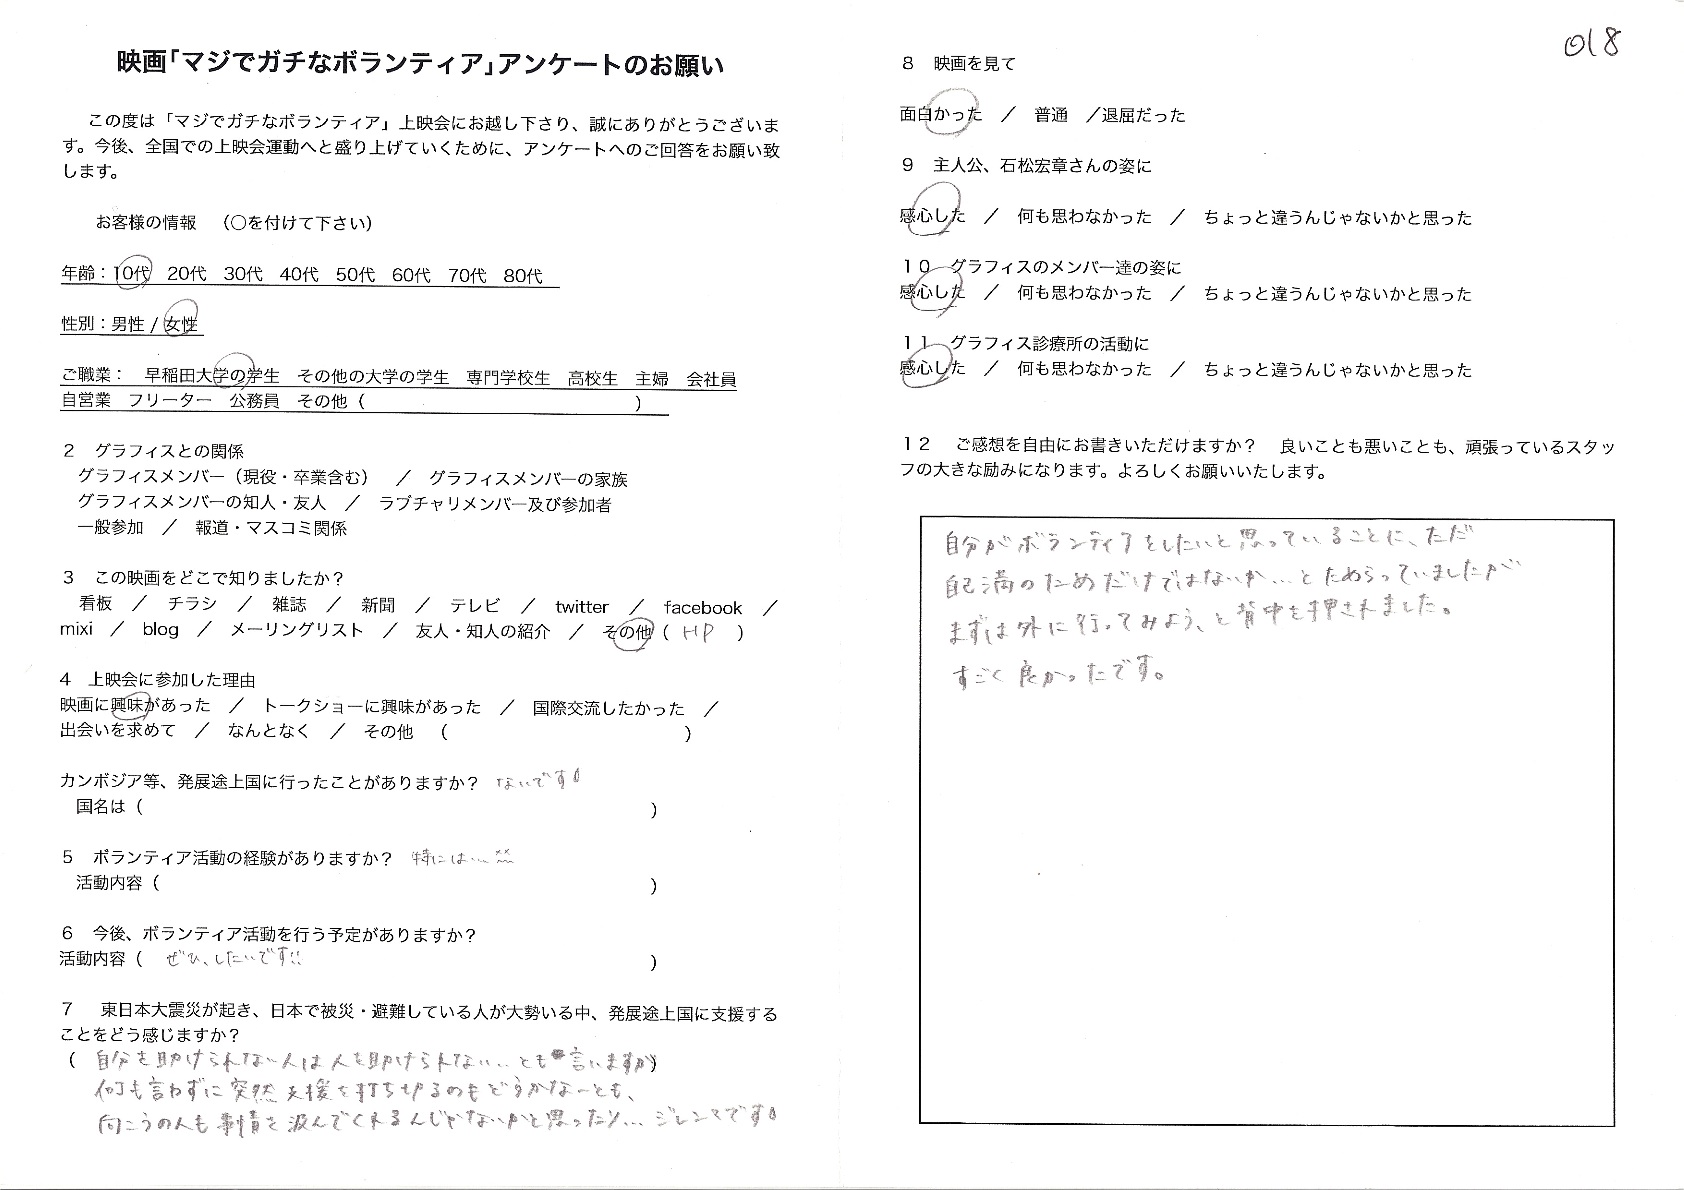 映画「マジでガチなボランティア」アンケートのお願い
この度は「マジでガチなボランティア」上映会にお越し下さり、誠にありがとうございま
す。今後、全国での上映会運動へと盛り上げていくために、アンケートへのご回答をお願い致
します。
お客様の情報　（〇を付けて下さい）
年齢：10代　20代　30代　40代　50代　60代　70代　80代
性別：男性 / 女性
ご職業：　早稲田大学の学生　その他の大学の学生　専門学校生　高校生　主婦　会社員
自営業　フリーター　公務員　その他（　　　　　　　　　　　　　　　　）
２　グラフィスとの関係
グラフィスメンバー（現役・卒業含む）　／　グラフィスメンバーの家族
グラフィスメンバーの知人・友人　／　ラブチャリメンバー及び参加者
一般参加　／　報道・マスコミ関係
３　この映画をどこで知りましたか？
看板　／　チラシ　／　雑誌　／　新聞　／　テレビ　／　twitter　／　facebook　／
mixi　／　blog　／　メーリングリスト　／　友人・知人の紹介　／　その他（ HP ）
４　上映会に参加した理由
映画に興味があった　／　トークショーに興味があった　／　国際交流したかった　／
出会いを求めて　／　なんとなく　／　その他　（　　　　　　　　　　　　　　）
カンボジア等、発展途上国に行ったことがありますか？　ないです！
国名は（　　　　　　　　　　　　　　　　　　　　　　　　　　　　　　）
５　ボランティア活動の経験がありますか？　特には…
活動内容（　　　　　　　　　　　　　　　　　　　　　　　　　　　　　）
６　今後、ボランティア活動を行う予定がありますか？
活動内容（　ぜひ、したいです!!　　　　　　　　　　　　　　　　　　　）
７　東日本大震災が起き、日本で被災・避難している人が大勢いる中、発展途上国に支援する
ことをどう感じますか？
（　自分を助けられない人は人を助けられない…とも言いますが）
何も言わずに突然支援を打ち切るのもどうかなーとも、
向こうの人も事情を汲んでくれるんじゃないかと思ったり… ジレンマです！
018
８　映画を見て
面白かった　／　普通　／退屈だった
９　主人公、石松宏章さんの姿に
感心した　／　何も思わなかった　／　ちょっと違うんじゃないかと思った
１０　グラフィスのメンバー達の姿に
感心した　／　何も思わなかった　／　ちょっと違うんじゃないかと思った
１１　グラフィス診療所の活動に
感心した　／　何も思わなかった　／　ちょっと違うんじゃないかと思った
１２　ご感想を自由にお書きいただけますか？　良いことも悪いことも、頑張っているスタッ
フの大きな励みになります。よろしくお願いいたします。
自分がボランティアをしたいと思っていることに、ただ
自己満のためだけではないか…とためらっていましたが
まずは外に行ってみよう、と背中を押されました。
すごく良かったです。